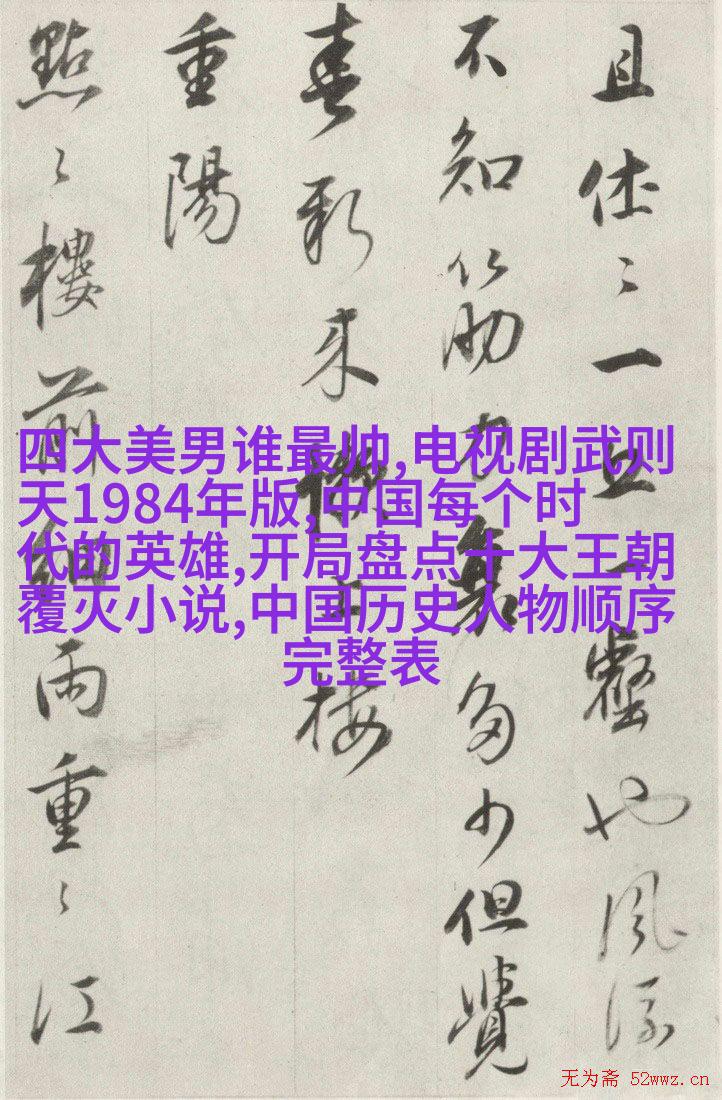 且休〻一丘一壑也風流
不知筋力衰多少但覺
新來懶上樓
重陽
點〻樓前細雨重〻江
四大美男谁最帅,电视剧武则
天1984年版,中国每个时
代的英雄,开局盘点十大王朝
覆灭小说,中国历史人物顺序
完整表
无为斋 52wwz.cn